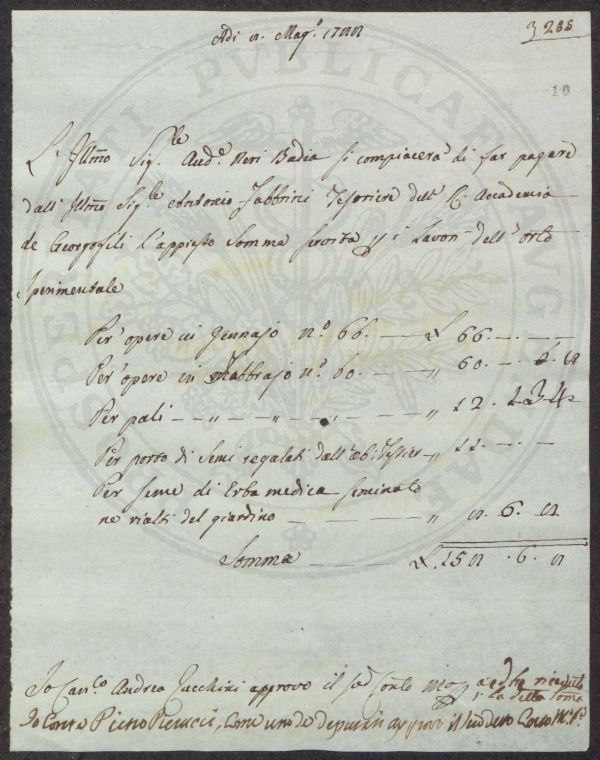 3 285
Adi 8. Mag.º 1788
10
L'Illmo Sig.le Aud.e Neri Badia si compiacerà di far pagare
dall'Illmo Sig.le Antonio Fabbrini Tesoriere dell' R. Accademia
de Georgofili l'appiesto Somma servita p i Lavori dell'orto
Sperimentale
Per opere in Gennajo n.º 66. — £ 66. —. —
Per opere in Febbrajo n.º 60. — „ 60 —.
Per pali — „ — „ — „ — „ 12.
Per porto di Semi regalati dall'Ab: Tessier — „ 11. —. —
Per seme di Erba medica seminato
ne rialti del giardino — „ 8. 6. 8
Somma — £. 158. 6. 8
Io Cav.co Andrea Zucchini approvo il sud Conto mo pp.a ed ho ricevuto
la detta somma
Io Conte Pietro Perucci, come uno de deputati approvo il suddetto Conto M. P.
PUBLICAE